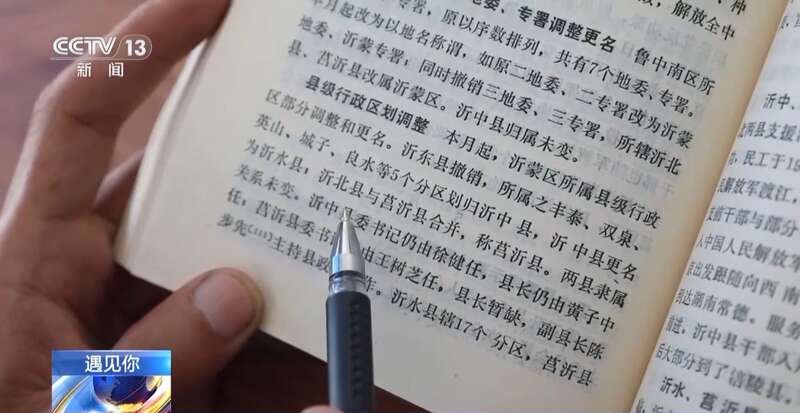 CCTV 13
新闻
地委、专署调整更名 鲁中南区所
专署，原以序数排列，共有7个地委、专署。
本月起改为以地名称谓，如原二地委、二专署改为沂蒙
委、沂蒙专署；同时撤销三地委、三专署，所辖沂北
县、莒沂县改属沂蒙区。沂中县归属未变。
县级行政区划调整 本月起，沂蒙区所属县级行政
区部分调整和更名。沂东县撤销，所属之丰泰、双泉、
英山、城子、良水等5个分区划归沂中县，沂中县更名
为沂水县；沂北县与莒沂县合并，称莒沂县。两县隶属
关系未变。沂中县委书记仍由徐健任，县长仍由黄子中
任；莒沂县委书 由王树芝任，县长暂缺，副县长陈
步先 主持县政 年。沂水县辖17个分区，莒沂县
沂中、
两县支援
，民工于19
民解放军渡江，
支前干部与部分
入中国人民解放军
京出发跟随向西南
到达湖南常德。服务
前进，沂中县干部人
后大部分到了涪陵县。
沂水、莒沂
遇见你